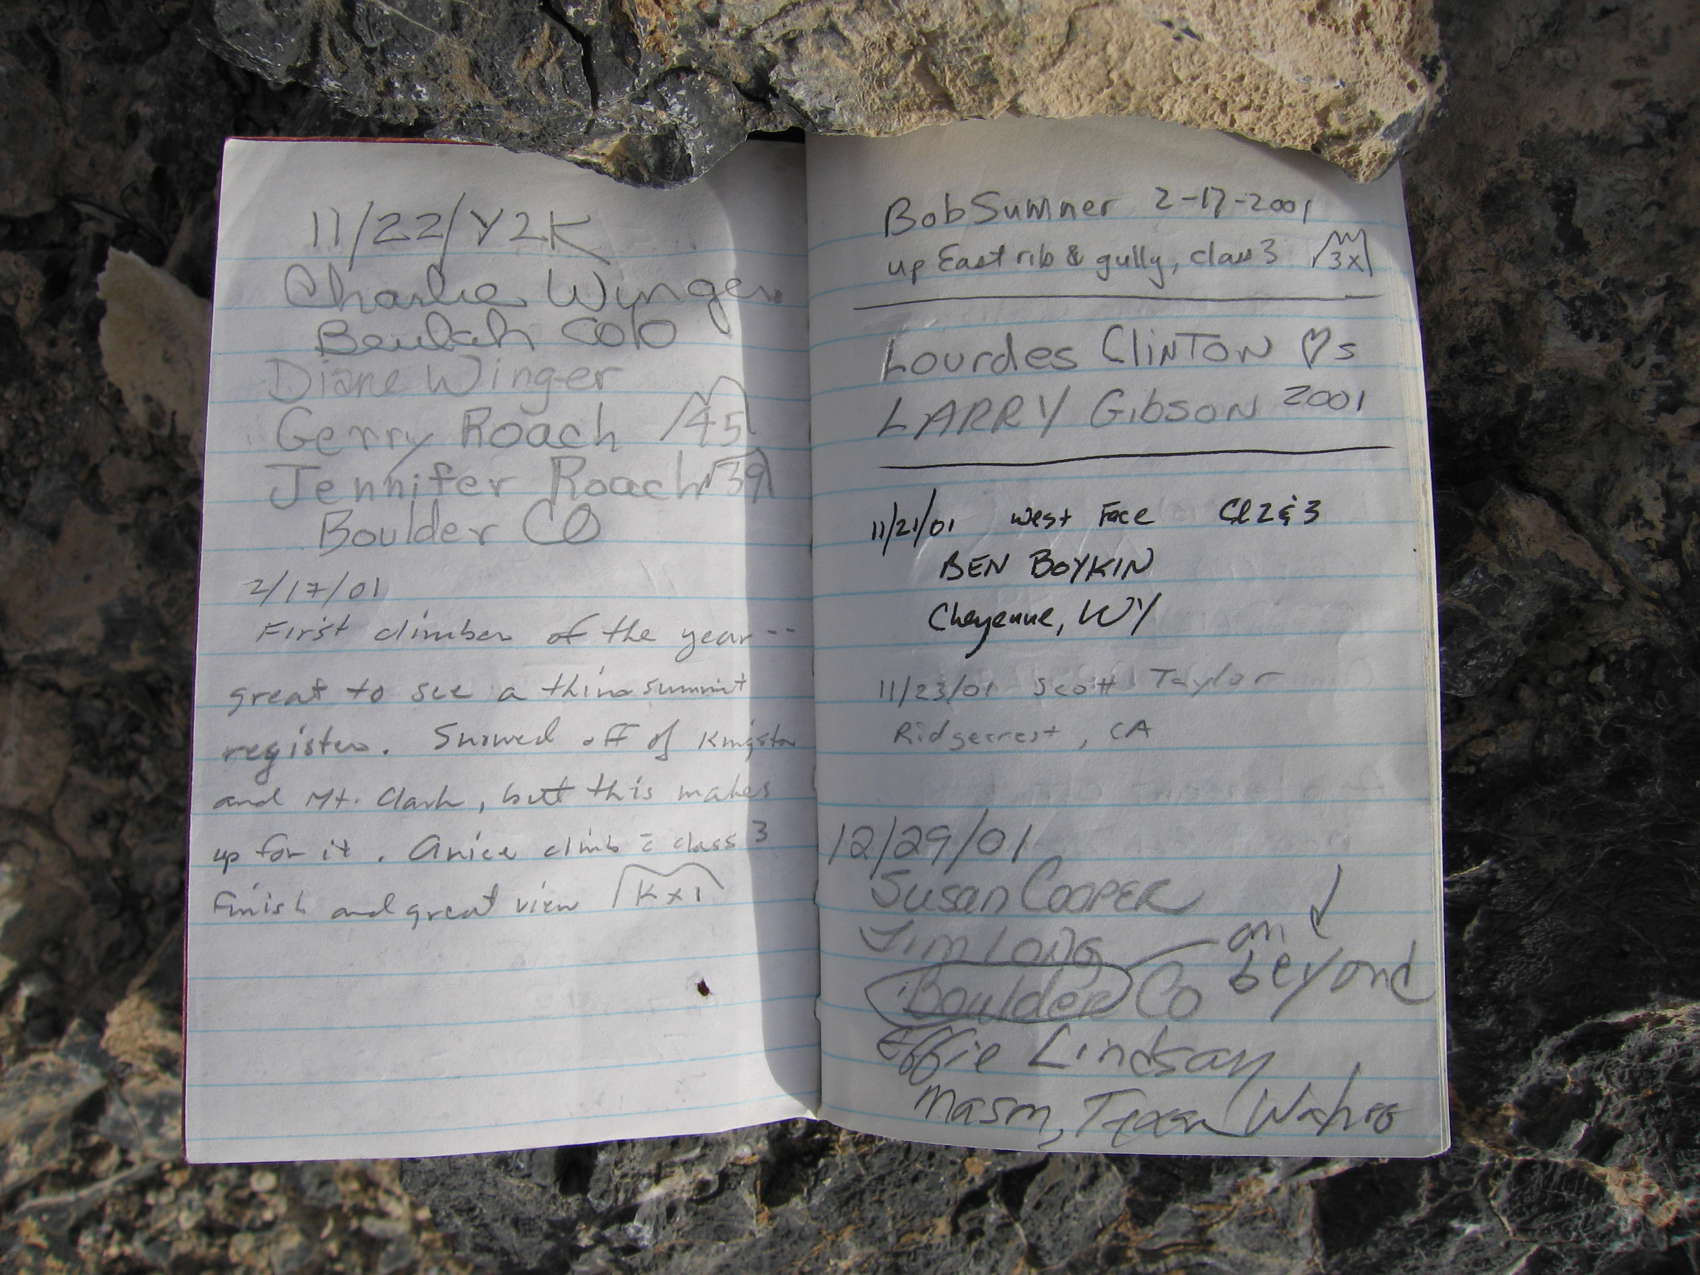 11/22/Y2K
Charlie Winger
Beulah Colo
Diane Winger
Gerry Roach 45
Jennifer Roach 39
Boulder CO
2/17/01
First climber of the year --
great to see a thin summit
register. Snowed off of Kingston
and Mt. Clark, but this makes
up for it. A nice climb c̄ class 3
finish and great view K x 1
Bob Sumner 2-17-2001
up East rib & gully, class 3 3x
Lourdes CLINTON ♡s
LARRY GIBSON 2001
11/21/01 West Face Cl 2 & 3
BEN BOYKIN
Cheyenne, WY
11/23/01 Scott Taylor
Ridgecrest, CA
12/29/01
Susan COOPER
Jim Long
Boulder Co and beyond
Effie Lindsay